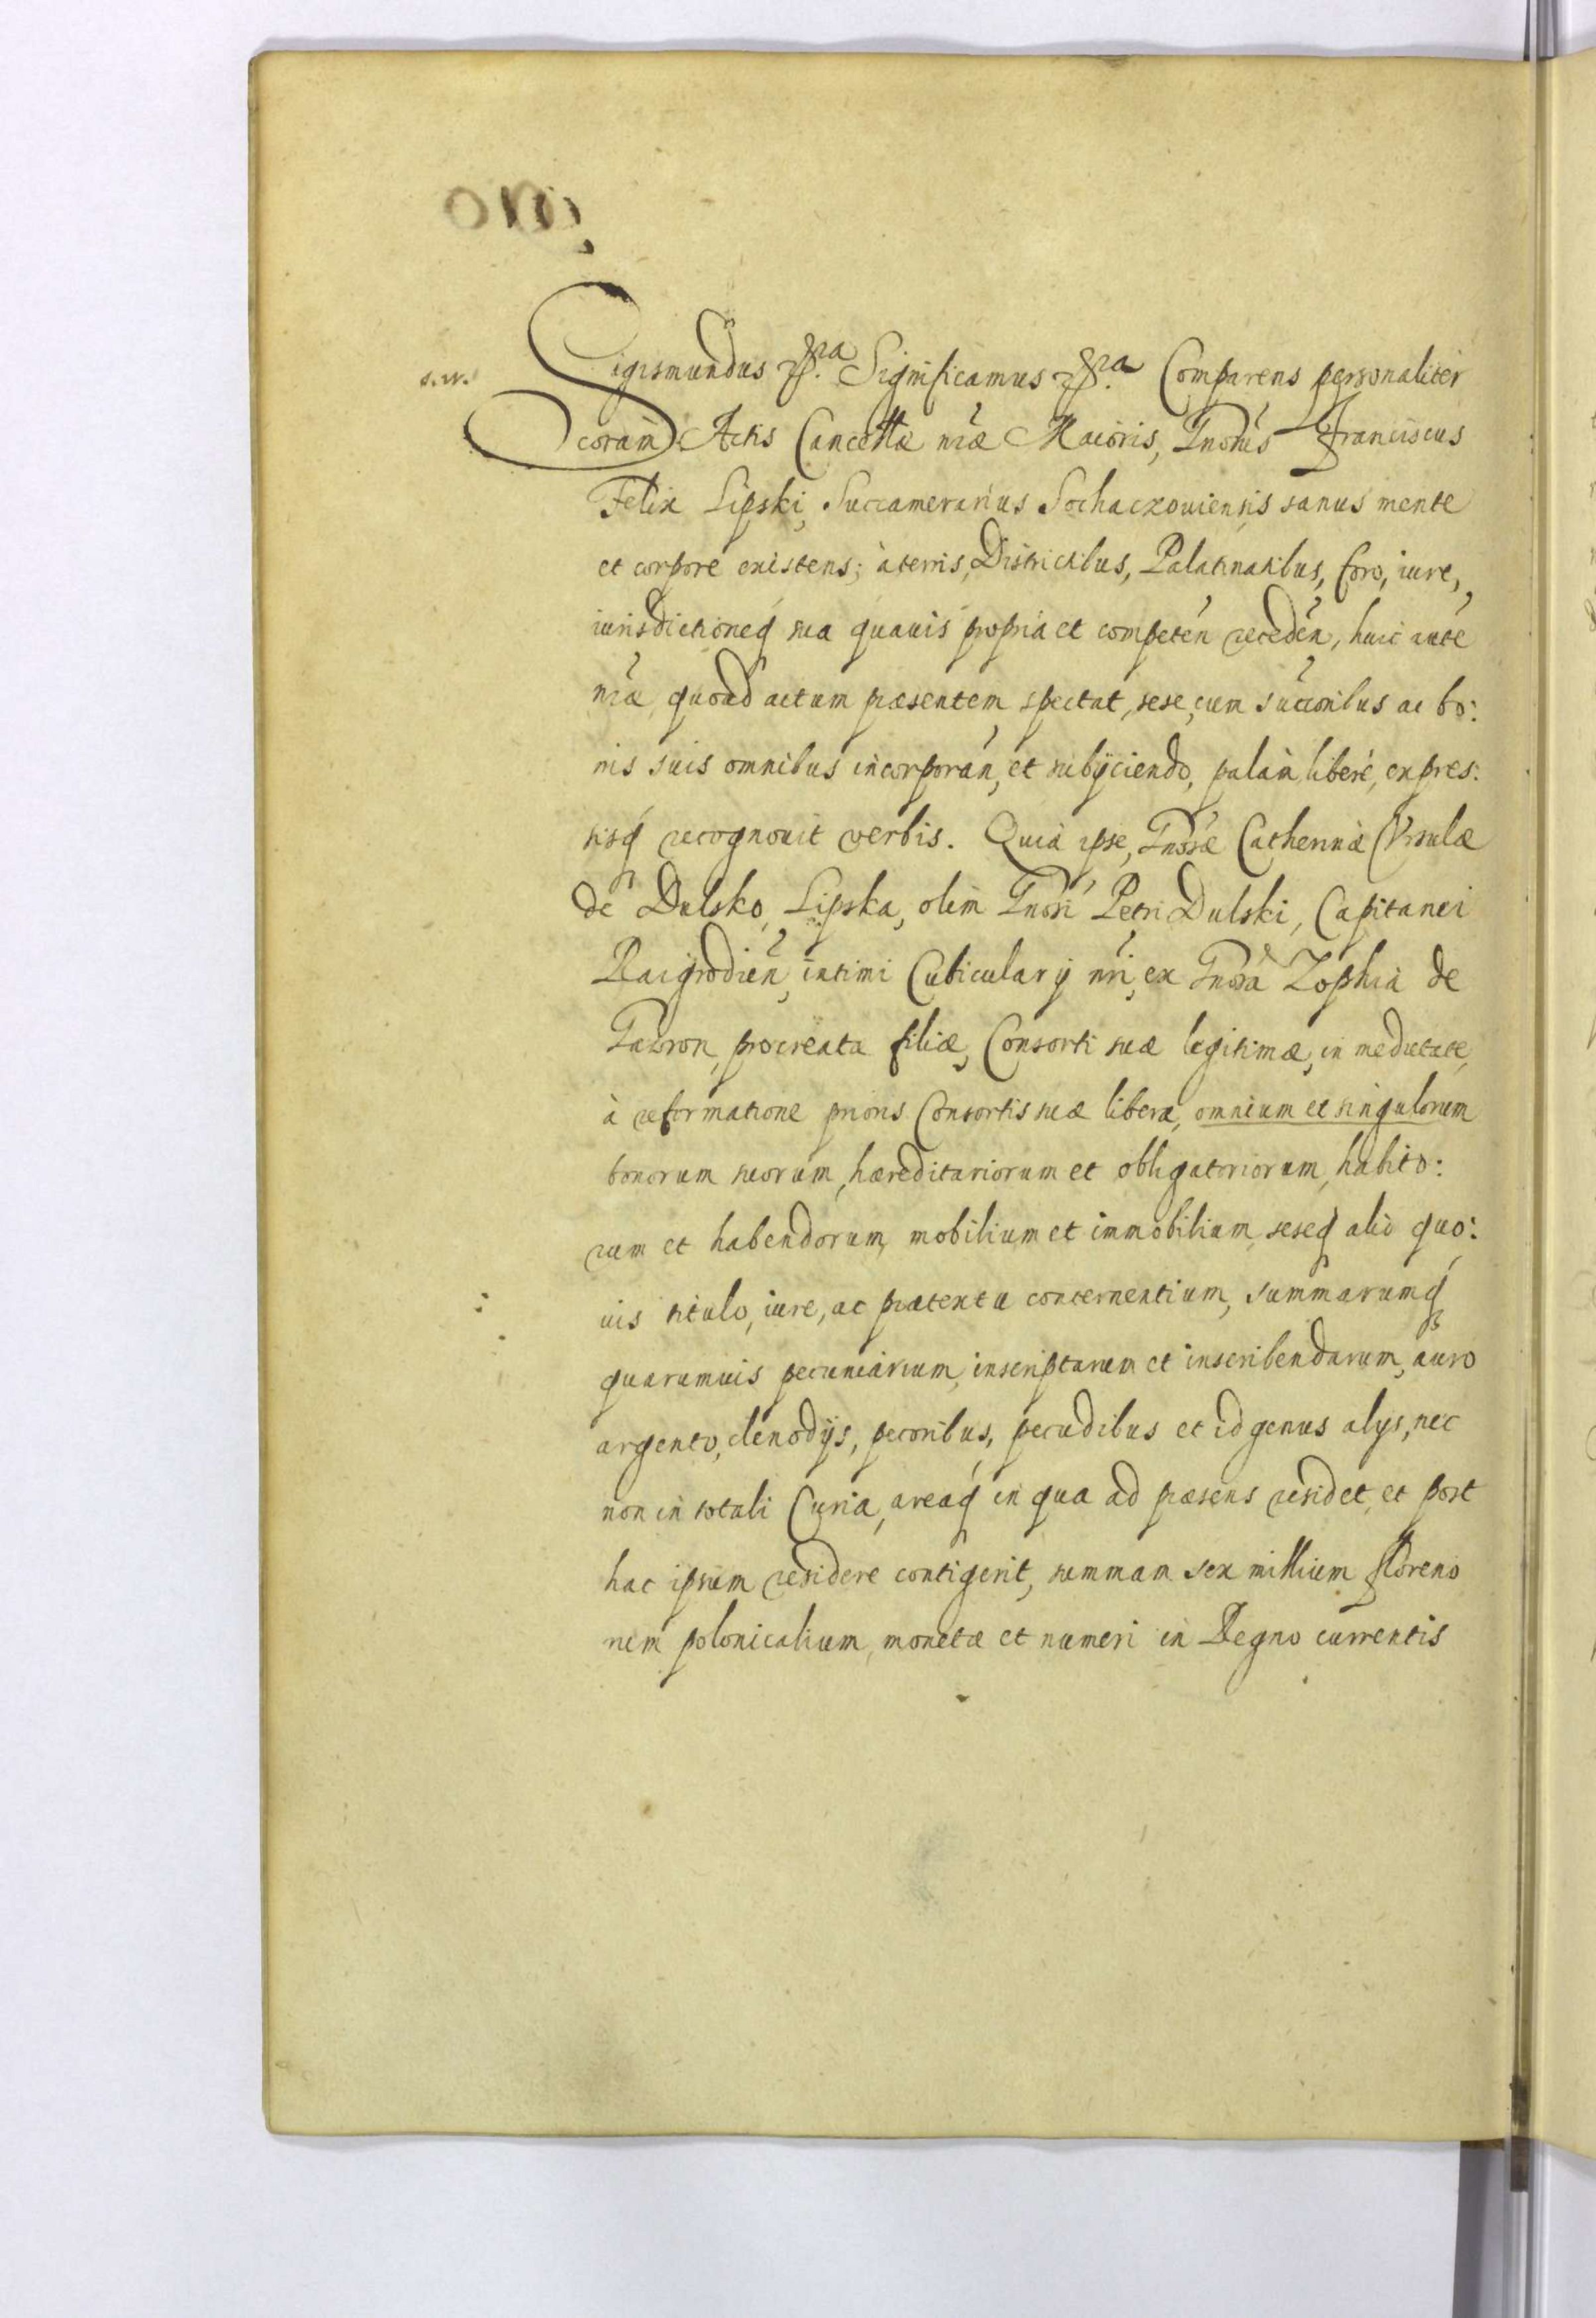 s.w.
Sigismundus &ra Significamus &ra Comparens personaliter
coram Actis Cancellæ nræ Maioris, Gnosus Franciscus
Felix Lipski, Succamerarius Sochaczouiensis sanus mente
et corpore existens; à terris, Districtibus, Palatinatibus, foro, iure,
iurisdictioneq sua quauis propria et competen̄ receden̄, huic autē
nræ, quoad actum præsentem spectat, sese, cum succoribus ac bo:
nis suis omnibus incorporan̄, et subÿciendo, palàm, liberè, expres:
sisq recognouit verbis. Quià ipse, Gnosæ Catherinæ Vrsulæ
de Dulsko, Lipska, olim Gnosi Petri Dulski, Capitanei
Raigrodien̄, intimi Cubicularÿ nri, ex Gnosa Zophia de
procreata filiæ, Consorti suæ legitimæ, in medietate,
à reformatione prioris Consortis suæ libera, omnium et singulorum
bonorum suorum, hæreditariorum et obligatoriorum, habito:
rum et habendorum, mobilium et immobilium, seseq alio quo:
uis titulo, iure, ac prætextu concernentium, summarumq
quarumuis pecuniarium, inscriptarum et inscribendarum, auro
argento, clenodÿs, pecoribus, pecudibus et id genus alÿs, nec
non in totali Curia, areaq in qua ad præsens residet, et post
hac ipsum residere contigerit, summam sex millium floreno
rum polonicalium, monetæ et numeri in Regno currentis